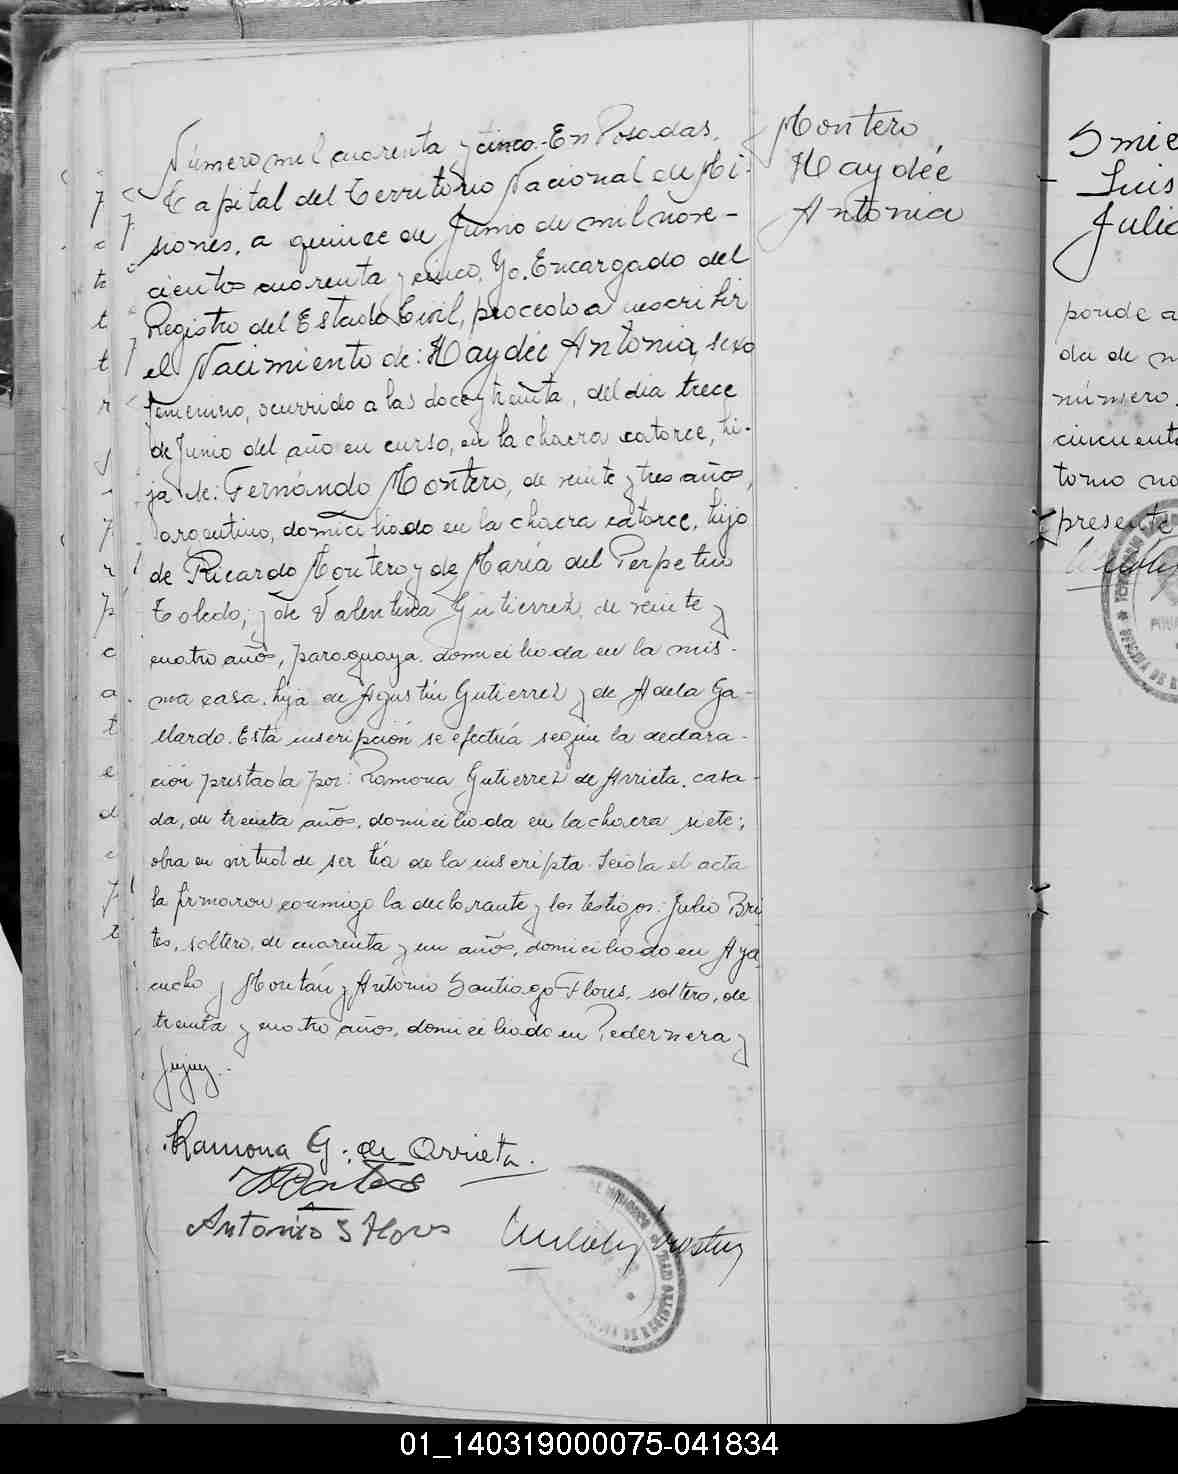 Número mil cuarenta y cinco.-En Posadas,
Capital del Territorio Nacional de Mi-
siones, a quince de Junio de mil nove-
cientos cuarenta y cinco, Yo, Encargado del
Registro del Estado Civil, procedo a inscribir
el Nacimiento de: Haydée Antonia, sexo
femenino, ocurrido a las doce y treinta, del día trece
de Junio del año en curso, en la chacra catorce, hi-
ja de: Fernándo Montero, de veinte y tres años,
argentino, domiciliado en la chacra catorce, hijo
de Ricardo Montero y de María del Perpetuo
Toledo; y de Valentina Gutierrez, de veinte y
cuatro años, paraguaya, domiciliada en la mis-
ma casa, hija de Agustín Gutierrez y de Adela Ga-
llardo. Esta inscripción se efectúa según la declara-
ción prestada por: Ramona Gutierrez de Arrieta, casa-
da, de treinta años, domiciliada en la chacra siete;
obra en virtud de ser tía de la inscripta. Leída el acta
la firmaron conmigo la declarante y los testigos: Julio Bri
tes, soltero, de cuarenta y un años, domiciliado en Aya
cucho y Montán y Antonio Santiago Flores, soltero, de
treinta y cuatro años, domiciliado en Pedernera y
Jujuy.-
Ramona G. de Arrieta.
Antonio S Flores
Montero
Haydée
Antonia
Smie
Luis
Julio
ponde a
da de n
número
cincuenta
tomo no
presente
01_140319000075-041834